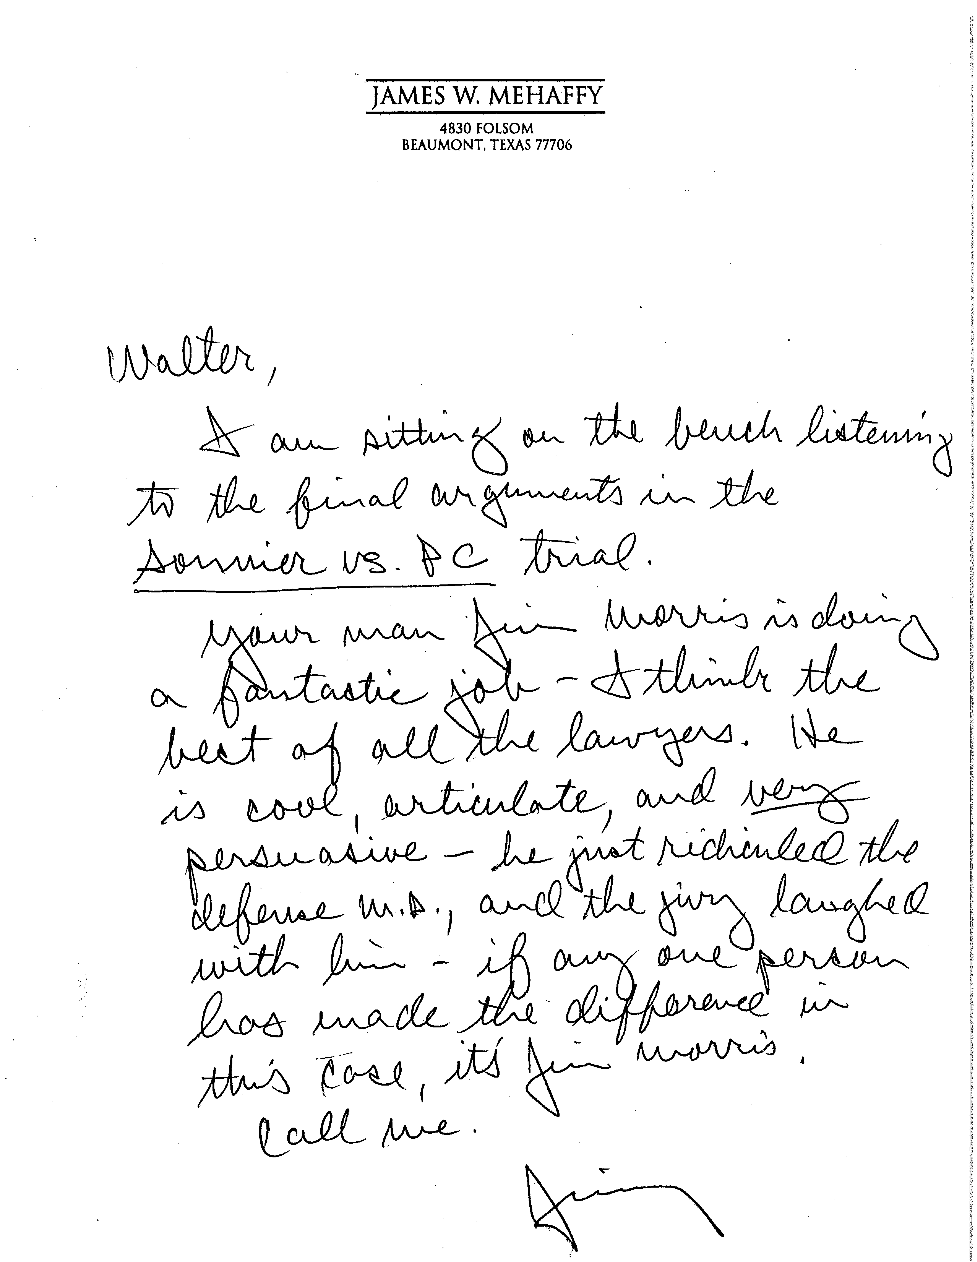 JAMES W. MEHAFFY
4830 FOLSOM
BEAUMONT, TEXAS 77706
Walter,
I am sitting on the bench listening
to the final arguments in the
Sonnier vs. PC trial.
Your man Jim Morris is doing
a fantastic job – I think the
best of all the lawyers. He
is cool, articulate, and very
persuasive – he just ridiculed the
defense M.D., and the jury laughed
with him – if any one person
has made the difference in
this case, it's Jim Morris.
Call me.
Jim